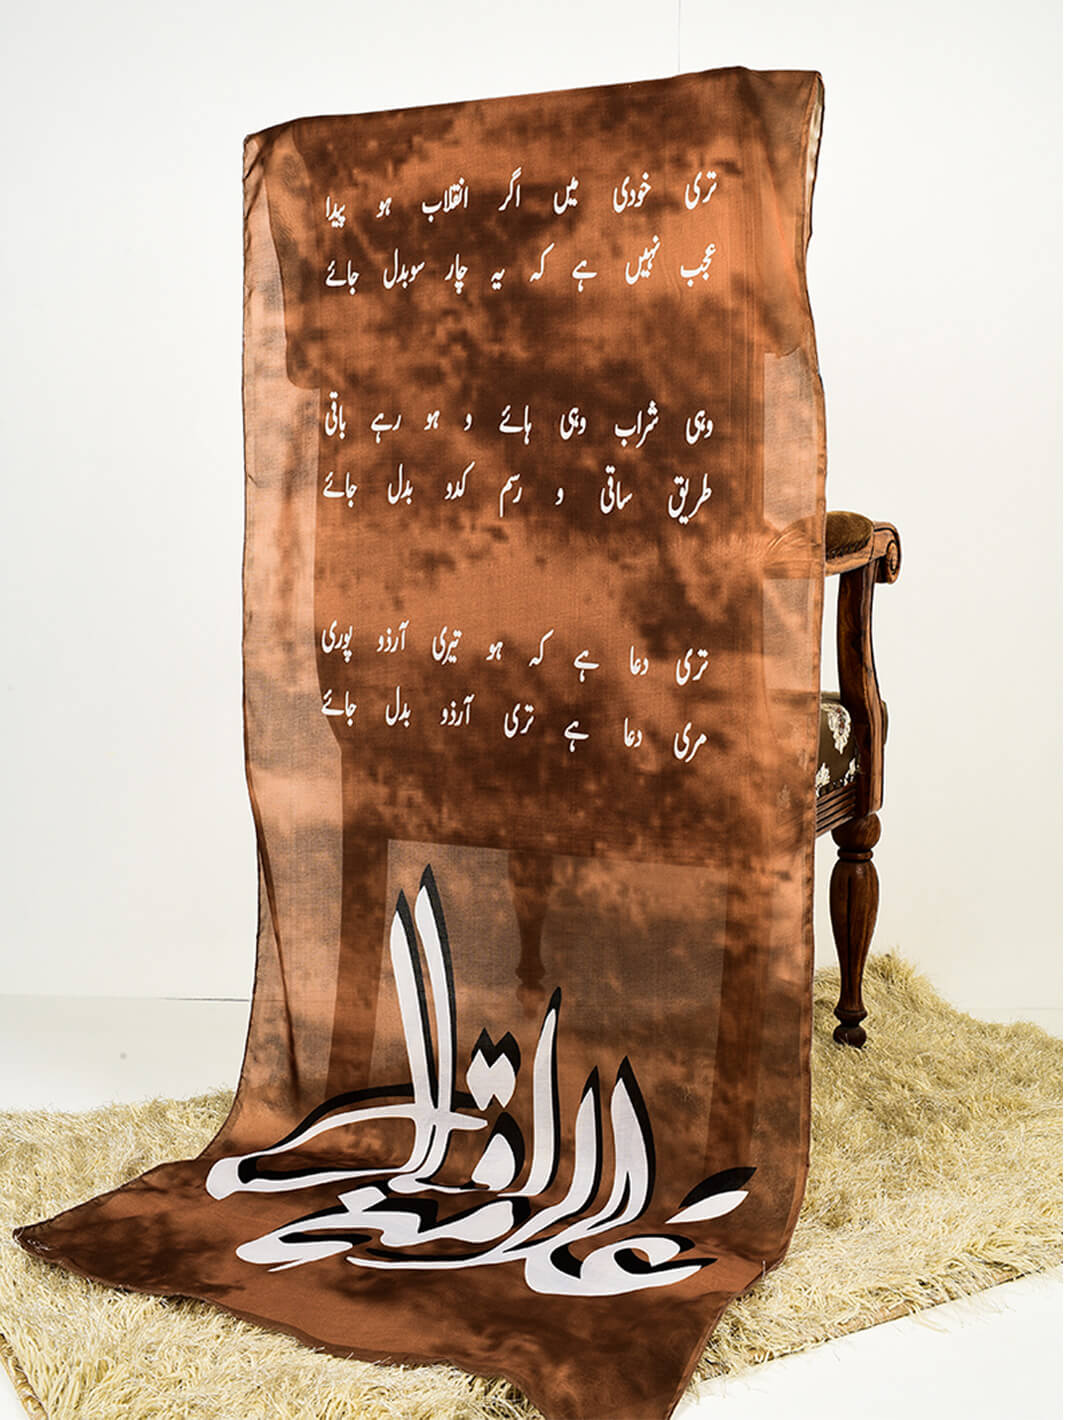 تری خودی میں اگر انقلاب ہو پیدا
عجب نہیں ہے کہ یہ چار سو بدل جائے
وہی شراب وہی ہائے و ہو رہے باقی
طریق ساقی و رسم کدو بدل جائے
تری دعا ہے کہ ہو تیری آرزو پوری
مری دعا ہے تری آرزو بدل جائے
علامہ اقبال